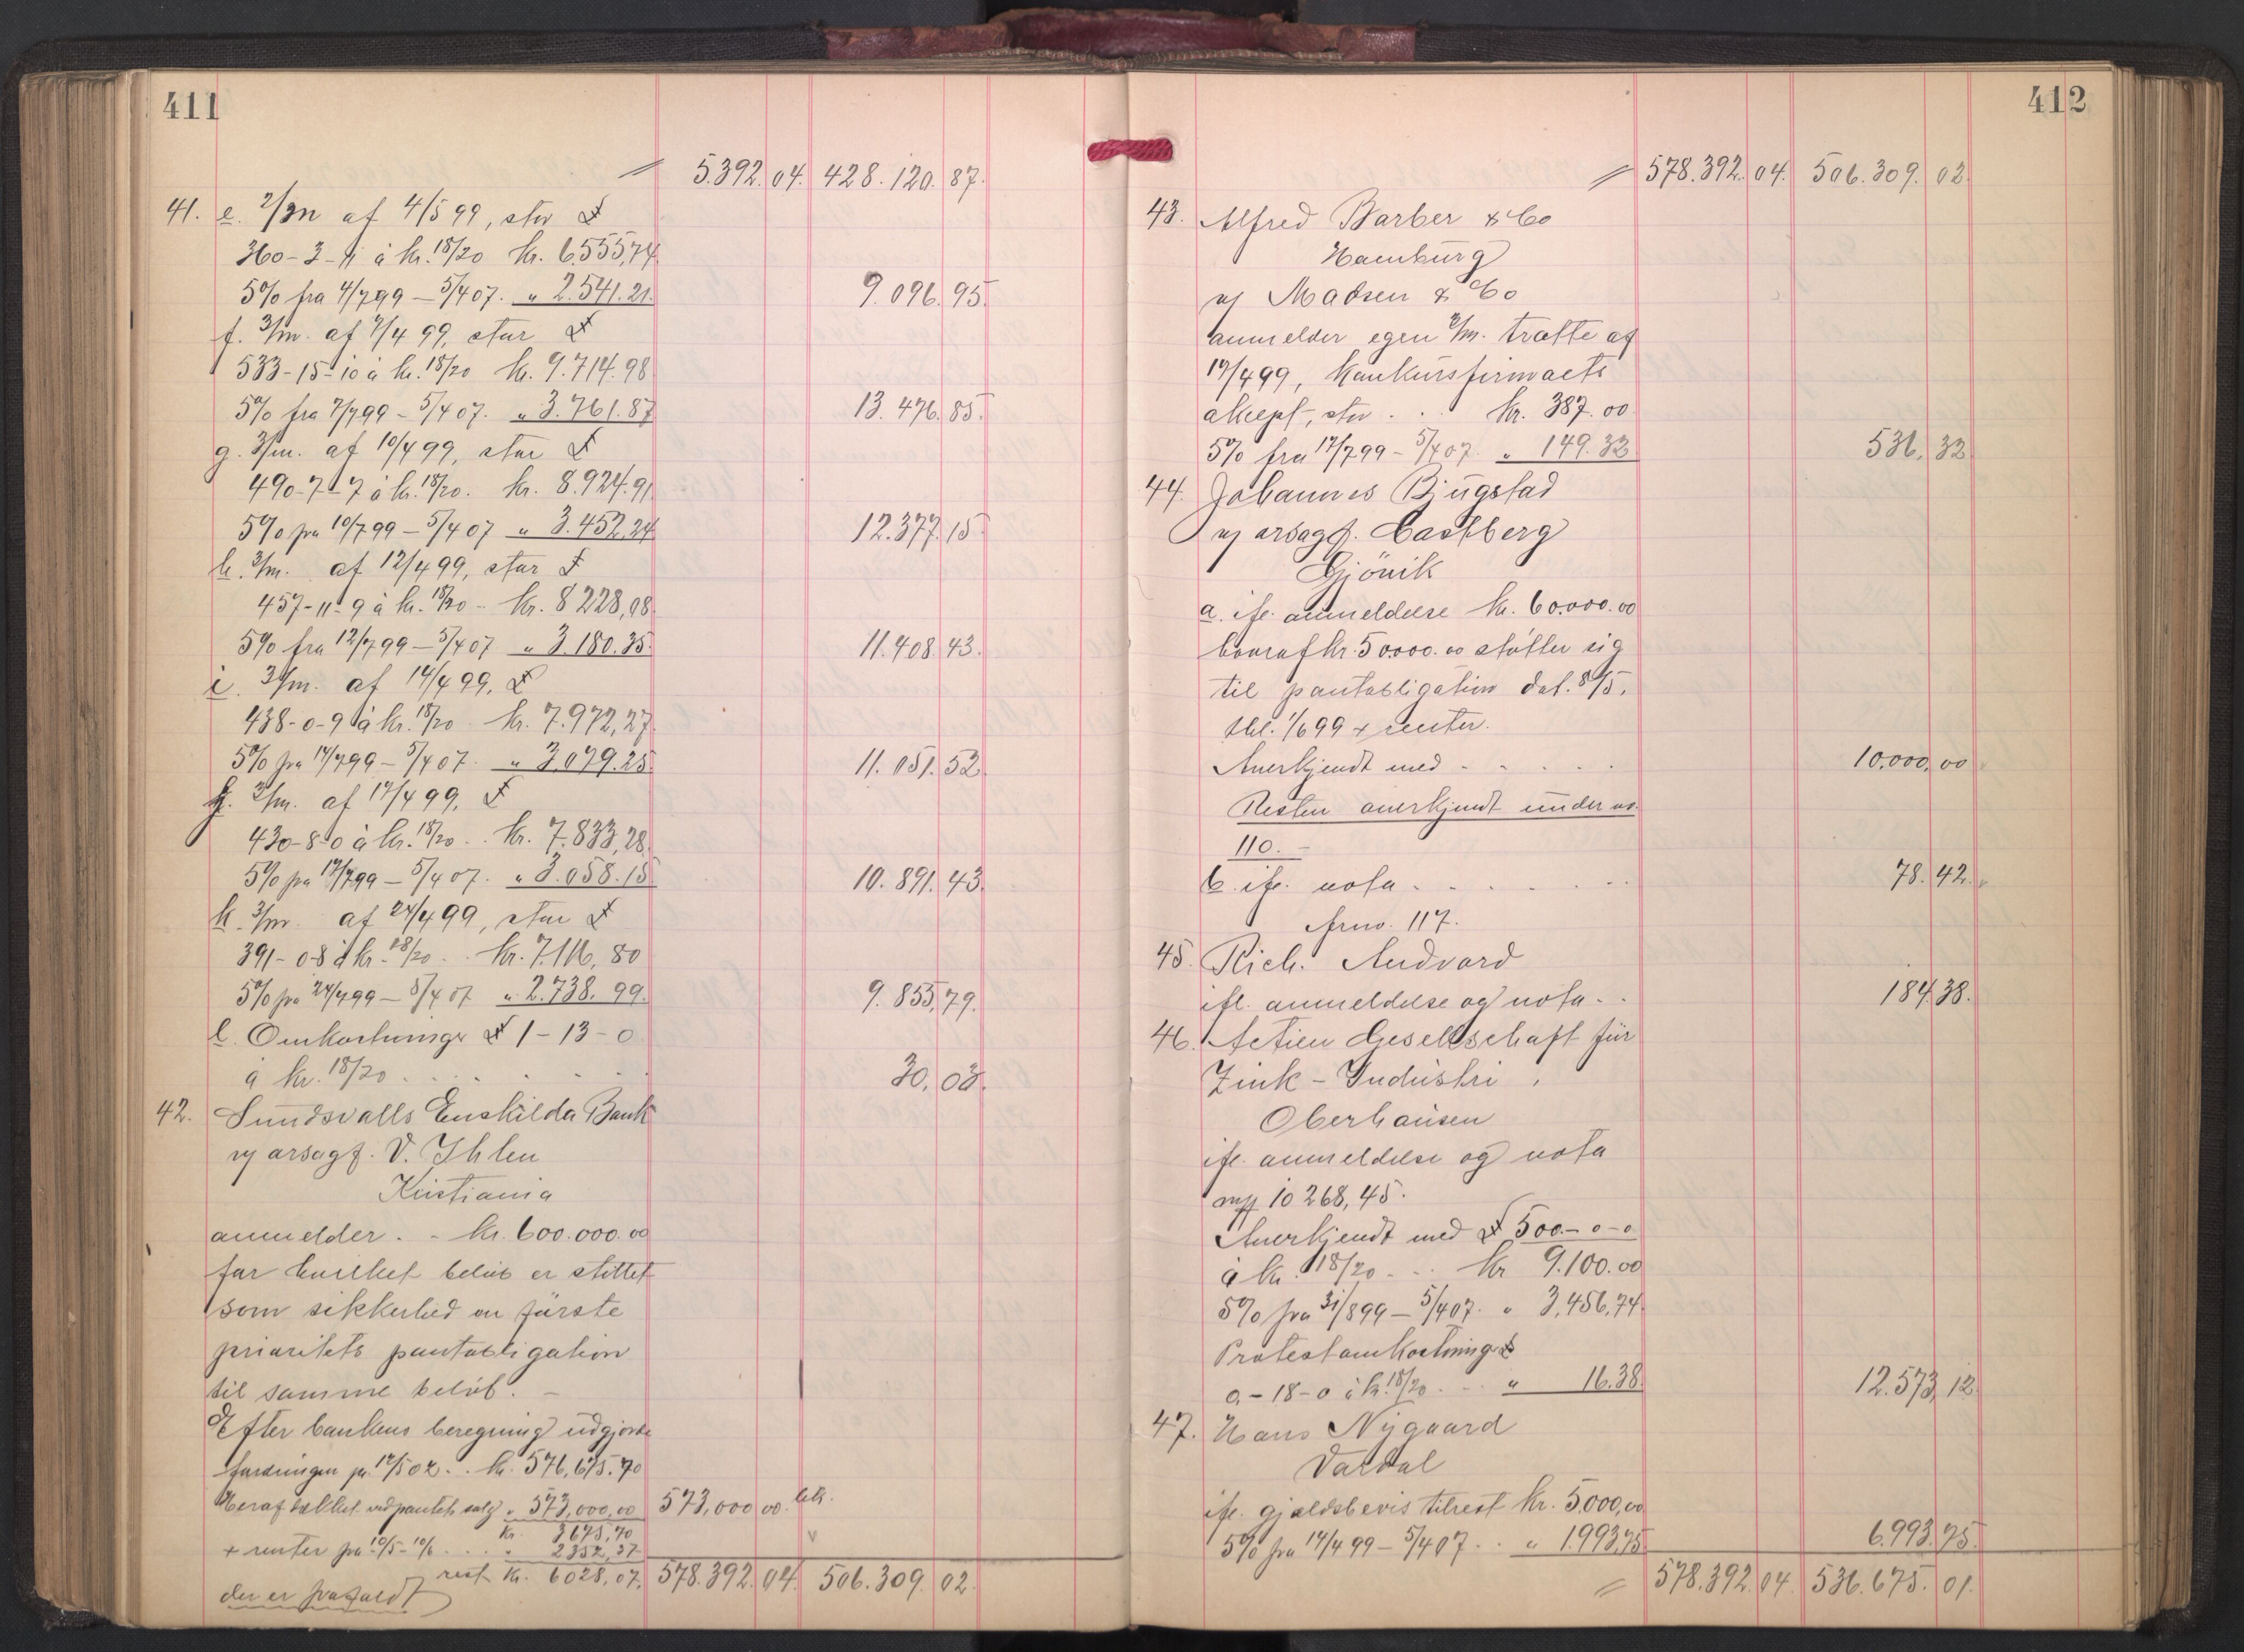 411
〃 5.392.04. 428.120.87.
41. e. 2/m af 4/5 99, stor £
360-3-11 à kr. 18/20 kr. 6.555,74
5% fra 4/7 99 - 5/4 07. " 2.541.21. 9.096.95.
f. 3/m. af 7/4 99, stor £
533-15-10 à kr. 18/20 kr. 9.714.98
5% fra 7/7 99 - 5/4 07. " 3.761.87 13.476.85.
g. 3/m. af 10/4 99, stor £
490-7-7 à kr. 18/20. kr. 8.924.91
5% fra 10/7 99 - 5/4 07 " 3.452.24 12.377.15.
h. 3/m. af 12/4 99, stor £
457-11-9 à kr. 18/20 - kr. 8228,08
5% fra 12/7 99 - 5/4 07 " 3.180.35. 11.408.43.
i. 3/m. af 14/4 99, £
438-0-9 à kr. 18/20 - kr. 7.972,27
5% fra 14/7 99 - 5/4 07. " 3.079.25. 11.051.52.
j. 3/m. af 17/4 99, £
430-8-0 à kr. 18/20 . . kr. 7.833,28
5% fra 17/7 99 - 5/4 07. " 3.058.15 10.891.43.
k. 3/m. af 24/4 99, stor £
391-0-8 à kr. 18/20 . . kr. 7.116,80
5% fra 24/7 99 - 5/4 07 " 2.738.99. 9.855,79.
l. Omkostninger £ 1-13-0
à kr. 18/20 . . . . . . 30,03.
42. Sundsvalls Enskilda Bank
v/ orsagf. V. Ihlen
Kristiania
anmelder . - kr. 600.000.00
for hvilket belöb er stillet
som sikkerhed en förste
prioritets pantobligation
til samme belöb. -
Efter bankens beregning udgjorde
fordringen pr. 12/5 02 . . kr. 576,675.70
Heraf dækket ved pantets salg " 573,000,00 573,000 00.
kr. 3675,70
+ renter fra 10/5 - 10/6 . . . " 2352,37
rest kr. 6028,07. 578.392.04. 506.309.02.
der er frafaldt
412
〃 578.392.04. 506.309.02.
43. Alfred Barber & Co
Hamburg
v/ Madsen & Co
anmelder egen 3/m. tratte af
17/4 99, konkursfirmaets
akcept, stor . . . kr. 387.00
5% fra 17/7 99 - 5/4 07. " 149.32 536,32
44. Johannes Bjugstad
v/ orsagf. Castberg
Gjövik
a. ifl. anmeldelse kr. 60.000.00
hvoraf kr. 50.000.00 stötter sig
til pantobligation dat. 8/5,
thl. 1/6 99 + renter.
Anerkjendt med - - . . . 10.000,00
Resten anerkjendt under no.
110. -
b. ifl. nota . - - . - . . 78.42.
Jrno. 117.
45. Rich. Andvord
ifl. anmeldelse og nota . . 184.38.
46. Actien Gesellschaft für
Zink-Industri,
Oberhausen
ifl. anmeldelse og nota
mk 10268,45.
Anerkjendt med £ 500.-0-0
à kr. 18/20 . . . kr 9.100.00
5% fra 31/8 99 - 5/4 07. " 3,456,74
Protestomkostninger £
0-18-0 à kr. 18/20 . . . " 16.38. 12.573,12
47. Hans Nygaard
Vardal
ifl. gjældsbevis tilrest kr. 5.000,00
5% fra 14/4 99 - 5/4 07 . . " 1.993,75 6.993.75.
〃 578.392.04. 536.675.01.